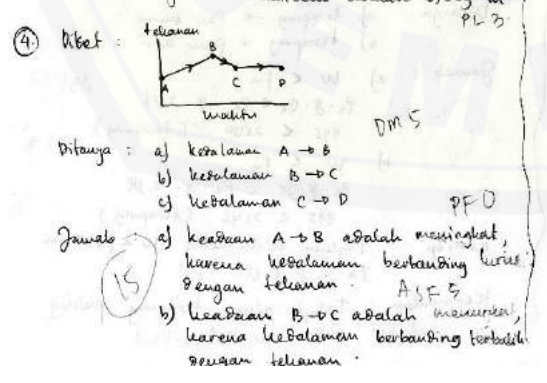 PL 3
4. Diket :
tekanan
A
B
C
D
waktu
DM 5
Ditanya : a) kedalaman A → B
b) kedalaman B → C
c) kedalaman C → D
PF 0
Jawab : a) keadaan A → B adalah meningkat,
karena kedalaman berbanding lurus
dengan tekanan.
ASF 5
15
b) keadaan B → C adalah menurun,
karena kedalaman berbanding terbalik
dengan tekanan.